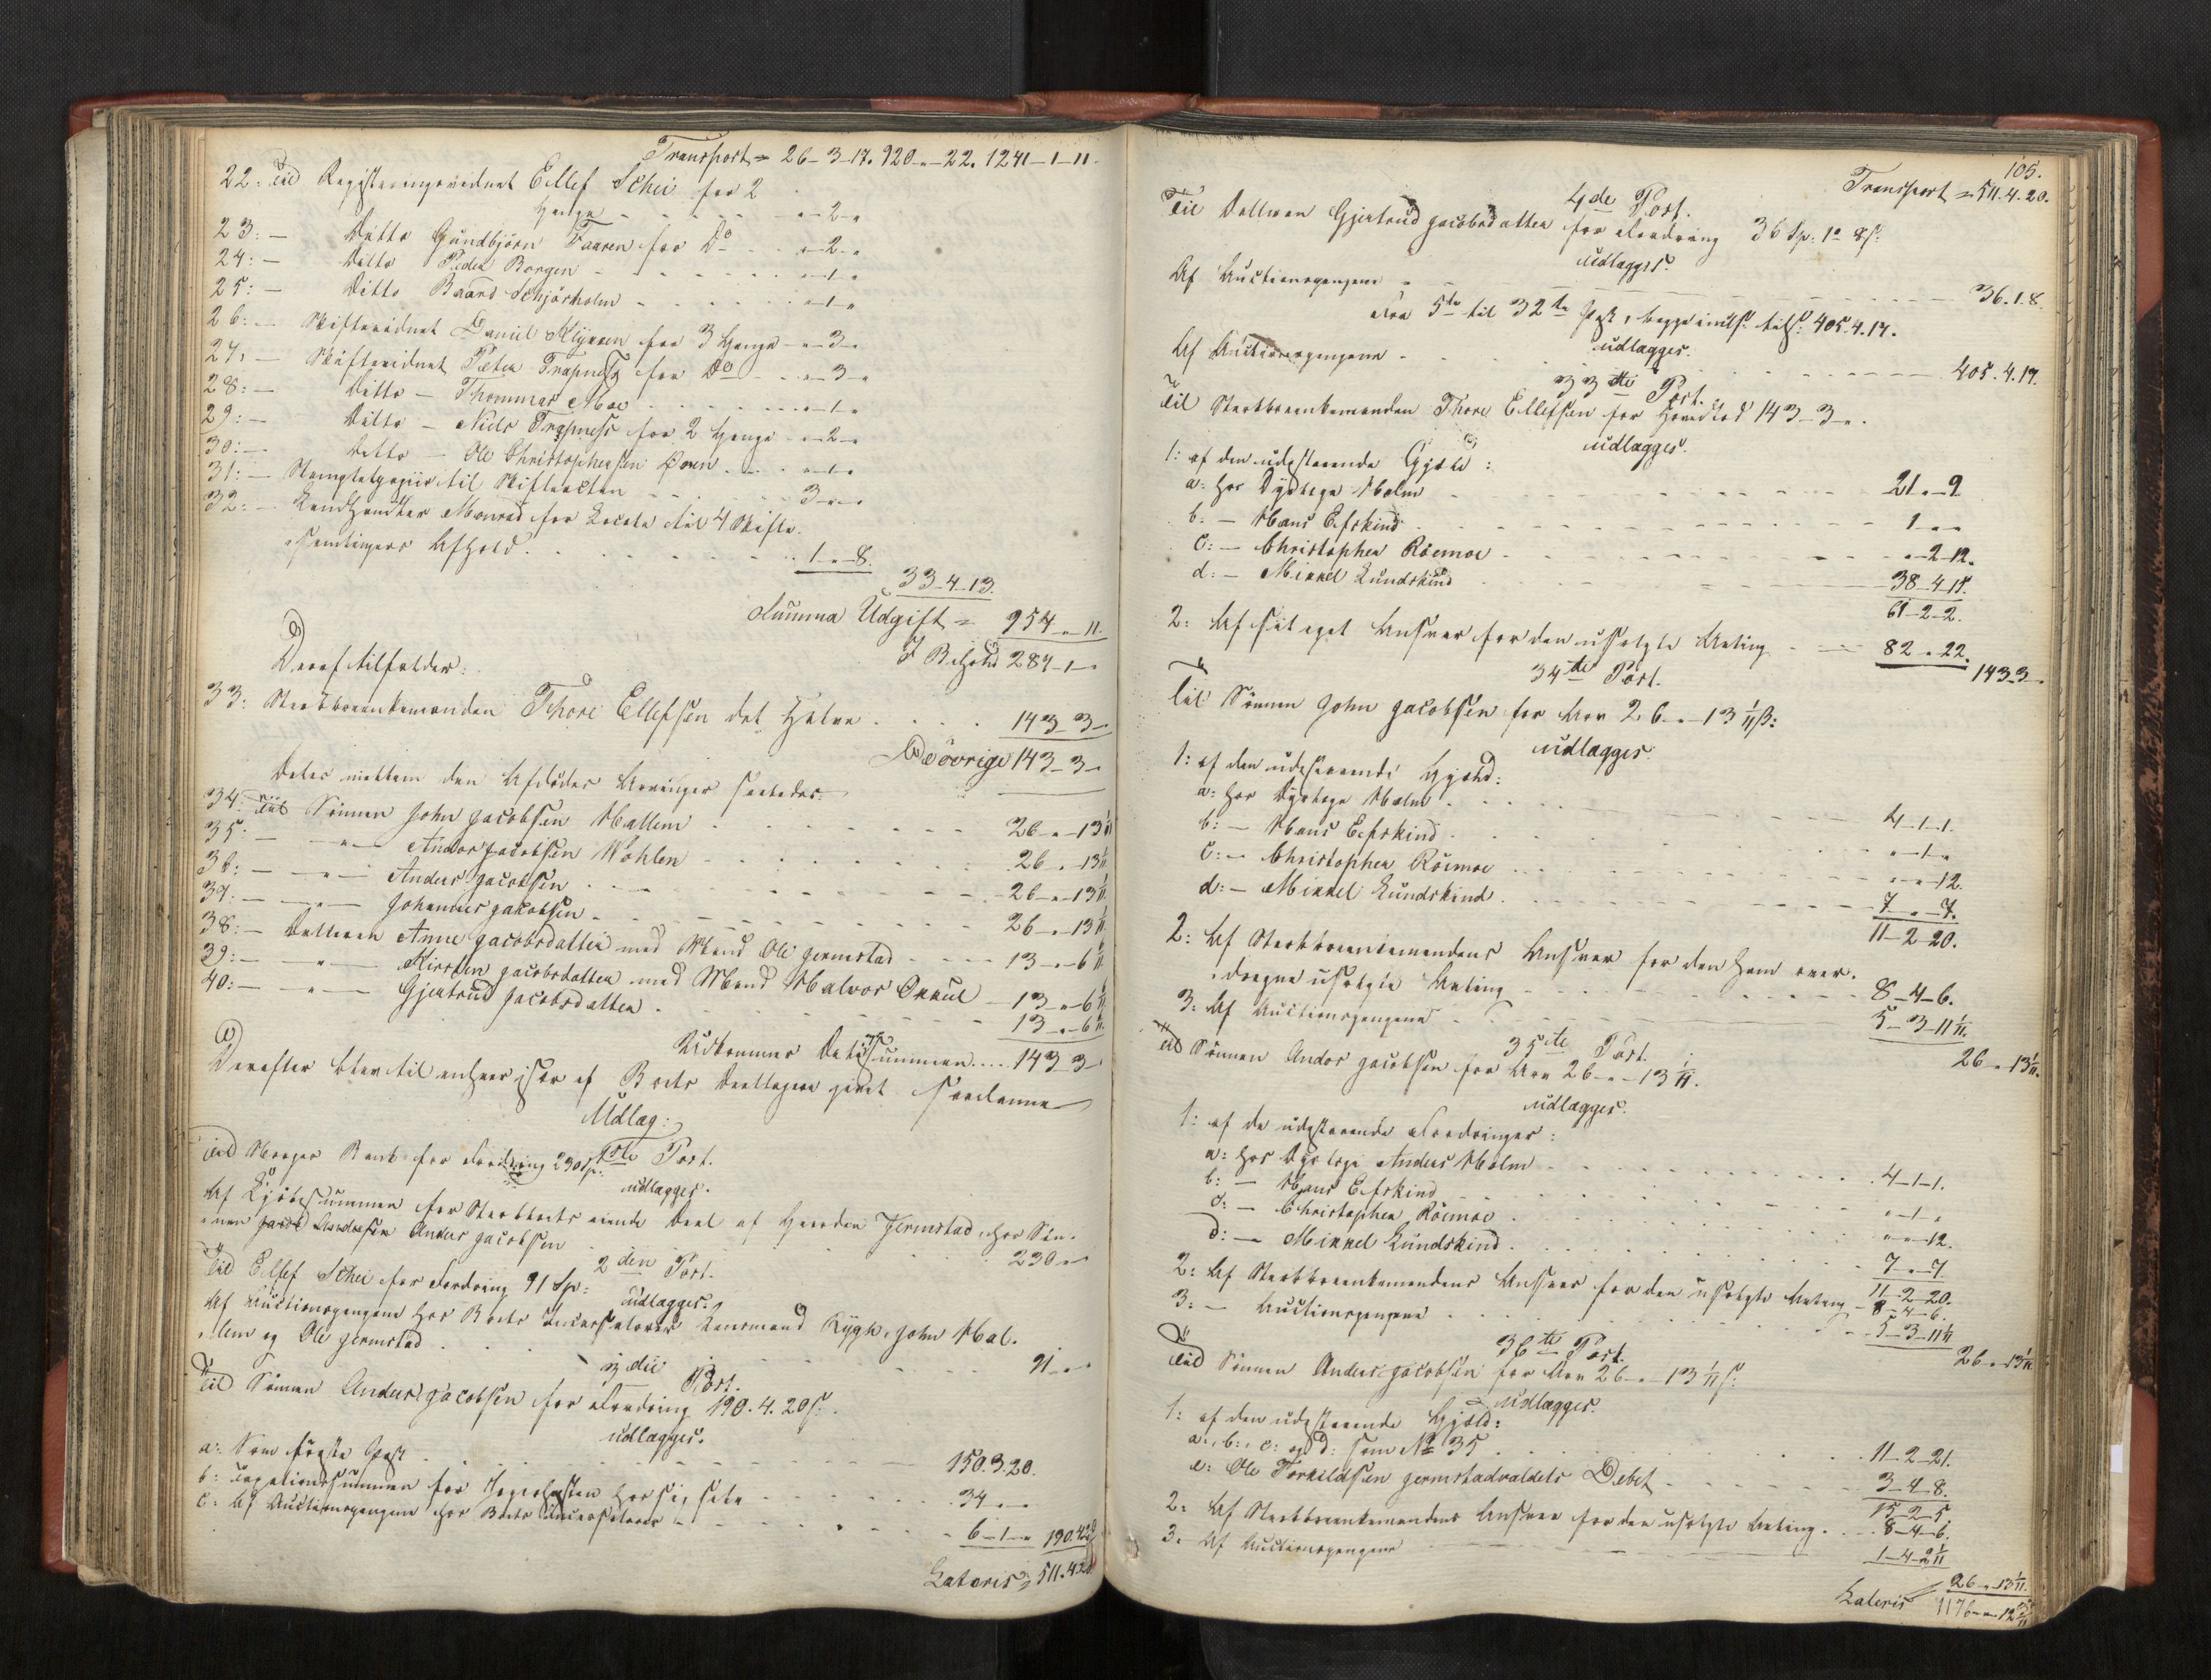 Transport = 26-3-17. 920 „-22. 1241-1-11.
22: Til Registeringsvidnet Ellef Schei for 2
Gange - - - „-2-„
23: — Ditto Gundbjörn Faaren for Do - - „-2-„
24: — Ditto Peder Borgen - - - „-1-„
25: — Ditto Baard Schjörholm - - - „-1-„
26: — Skiftevidnet Daniel Klynen for 3 Gange - „-3-„
27: — Skiftevidnet Peter Trapness for Do - - „-3-„
28: — Ditto — Thommas Moe - - - „-1-„
29: — Ditto — Niels Trapness for 2 Gange - „-2-„
30: — Ditto — Ole Christophersen Ören - - „-1-„
31: — Stemplet papiir til Skifteacten - - - 3-„-„
32: — Landhandler Monrad for Locale til 4 Skifte-
samlingers Afhold - - - 1-„-8.
33-4-13.
Summa Udgift = 954 „ 11.
I Behold 287-1-„
Deraf tilfalder:
33: Sterboenkemanden Thore Ellefsen det Halve - - - 143-3-„
De övrige 143-3-„
Deles mellem den Afdödes Arvinger saaledes:
34: Til Sönnen John Jacobsen Hallem - - - 26-„-13 1/11
35: — „ — Andor Jacobsen Wohlen - - - 26-„-13 1/11
36: — „ — Anders Jacobsen - - - 26-„-13 1/11
37: — „ — Johannes Jacobsen - - - 26-„-13 1/11
38: — Datteren Anne Jacobsdatter med Mand Ole Jermstad - - - 13-„-6 6/11
39: — „ — Kirsten Jacobsdatter med Mand Halvor Okkul - 13-„-6 6/11
40: — „ — Gjertrud Jacobsdatter - - - 13-„-6 6/11
Udkommer Delesummen.... 143-3-„
Derefter blev til enhver især af Boets Deeltagere gjort saadanne
Udlæg:
1ste Post.
Til Norges Bank for Fordring 230 Sp:
udlægges.
Af Kjöbesummen for Sterboets eiende Deel af Gaarden Jermstad, hos Sön-
nen Anders Jacobsen - - - 230-„-„
2den Post.
Til Ellef Schei for Fordring 91 Sp:
udlægges:
Af Auctionspengene hos Boets Incassatorer Lensmand Rygh, John Hal-
lem og Ole Jermstad - - - 91-„-„
3die Post.
Til Sönnen Anders Jacobsen for Fordring 190. 4. 20 s:
udlægges.
a: Som förste Post - - - 150. 3. 20.
b: Taxationssummen for hos sig selv - - - 34-„-„
c: Af Auctionspengene hos Boets Incassatorer - - - 6-1-„ 190.4.20
Lateris = 511.4.20
105.
Transport = 511. 4. 20.
4de Post.
Til Datteren Gjertrud Jacobsdatter for Fordring 36 Sp: 1 8 s:
udlægges.
Af Auctionspengene - - - 36. 1. 8
Fra 5te til 32te Post, begge incls: tils: 405. 4. 17.
udlægges.
Af Auctionspengene - - - 405. 4. 17.
33te Post.
Til Sterboenkemanden Thore Ellefsen for Hovedlod 143-3-„
udlægges.
1: af den udestaaende Gjæld:
a: hos Dyrlæge Holm - - - 21 „-9
b: — Hans Eefskind - - - 1-„-„
c: — Christopher Röemoe - - - „-2-12.
d: — Mikkel Lundskind - - - 38-4-15.
61-2-2.
2: Af sit eget Ansvar for den usolgte Anting - - - 82 „ 22. 143-3-„
34te Post.
Til Sönnen John Jacobsen for Arv 26 „-13 1/11 s:
udlægges.
1: af den udestaaende Gjæld:
a: hos Dyrlæge Holm - - - 4-1-1.
b: — Hans Eefskind - - - „-1-„
c: — Christopher Röemoe - - - „-„-12.
d: — Mikkel Lundskind - - - 7-„-7.
11-2-20.
2: Af Sterboenkemandens Ansvar for den ham over-
dragne usolgte Anting - - - 8-4-6.
3: Af Auctionspengene - - - 5-3-11 1/11.
26 „ 13 1/11.
35te Post.
Til Sönnen Andor Jacobsen for Arv 26 „-13 1/11.
udlægges.
1: af de udestaaende Fordringer:
a: hos Dyrlæge Anders Holm - - - 4-1-1.
b: — Hans Eefskind - - - „-1-„
c: — Christopher Röemoe - - - „-„-12.
d: — Mikkel Lundskind - - - 7-„-7
11-2-20.
2: Af Sterboenkemandens Ansvar for den usolgte Anting - 8-4-6.
3: — Auctionspengene - - - 5-3-11 1/11
26 „ 13 1/11
36te Post.
Til Sönnen Anders Jacobsen for Arv 26 „-13 1/11 s:
udlægges.
1: af den udestaaende Gjæld:
a:, b:, c: og d: som No 35 - - - 11-2-21.
e: Ole Torkildsen Jermstadvaldets Debet - - - 3-4-8.
15-2-5.
2: Af Sterboenkemandens Ansvar for den usolgte Anting - - - 8-4-6.
3: Af Auctionspengene - - - 1-4-2 1/11
26 „-13 1/11.
Lateris 1176-„-12